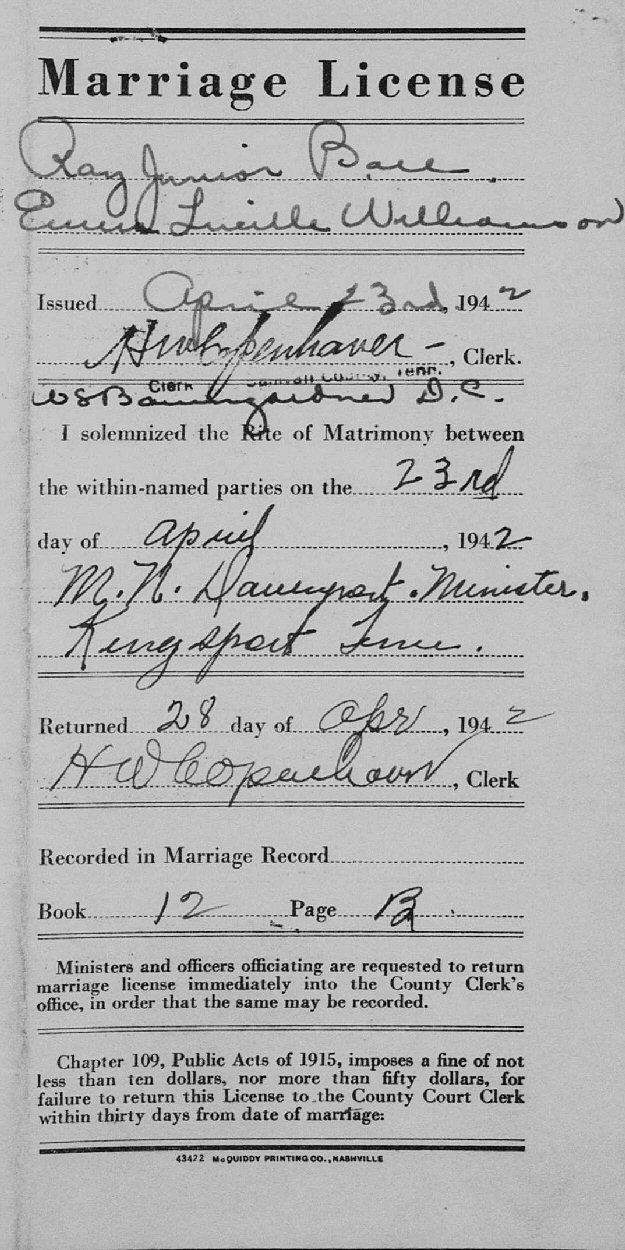 Marriage License
Ray Junior Bace
Lucille Williamson
Issued April 23rd, 1942
H W Copenhaver, Clerk.
Clerk Sullivan County, Tenn.
W S Baumgardner D. C.
I solemnized the Rite of Matrimony between
the within-named parties on the 23rd
day of April, 1942
M. N. Davenport. Minister.
Kingsport Tenn.
Returned 28 day of Apr, 1942
H W Copenhaver, Clerk
Recorded in Marriage Record
Book 12 Page B
Ministers and officers officiating are requested to return
marriage license immediately into the County Clerk's
office, in order that the same may be recorded.
Chapter 109, Public Acts of 1915, imposes a fine of not
less than ten dollars, nor more than fifty dollars, for
failure to return this License to the County Court Clerk
within thirty days from date of marriage:
43472 McQUIDDY PRINTING CO., NASHVILLE